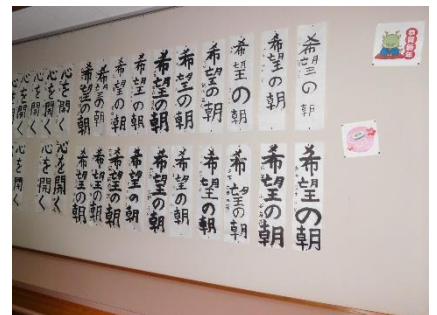 恭賀新年
希望の朝
希望の朝
希望の朝
希望の朝
希望の朝
希望の朝
希望の朝
希望の朝
希望の朝
希望の朝
心を開く
心を開く
心を開く
心を開く
心を開く
希望の朝
希望の朝
希望の朝
希望の朝
希望の朝
希望の朝
希望の朝
希望の朝
希望の朝
希望の朝
心を開く
心を開く
心を開く